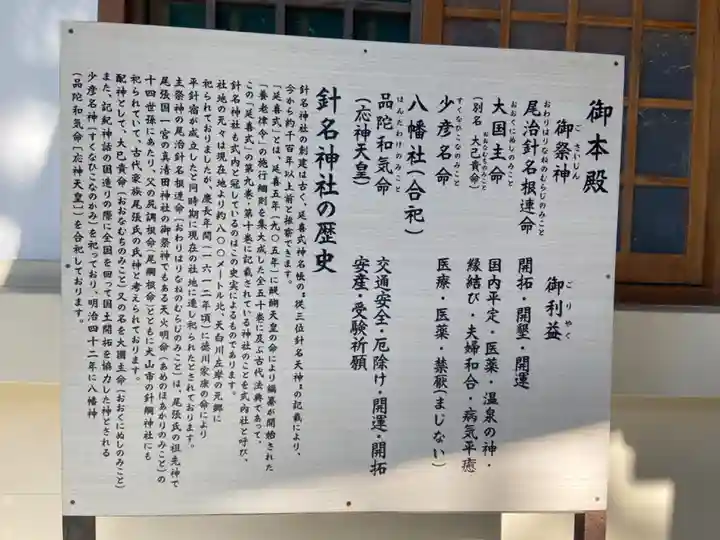 御本殿
御祭神
ごさいじん
御利益
ごりやく
尾治針名根連命
おわりはりなねのむらじのみこと
開拓・開墾・開運
大国主命
おおくにぬしのみこと
(別名・大己貴命)
おおなむちのみこと
国内平定・医薬・温泉の神・
縁結び・夫婦和合・病気平癒
少彦名命
すくなひこなのみこと
医療・医薬・禁厭(まじない)
八幡社(合祀)
品陀和気命
ほんだわけのみこと
(応神天皇)
交通安全・厄除け・開運・開拓
安産・受験祈願
針名神社の歴史
針名神社の創建は古く、延喜式神名帳の『従三位針名天神』の記載により、
今から約千百年以上前と推察できます。
「延喜式」とは、延喜五年(九〇五年)に醍醐天皇の命により編纂が開始された
「養老律令」の施行細則を集大成した全五十巻に及ぶ古代法典であって、
この「延喜式」の第九巻・第十巻に記載されている神社のことを式内社と呼び、
針名神社も式内と冠しているのはこの史実によるものであります。
社地の元々は現在地より約八〇〇メートル北、天白川左岸の元郷に
祀られておりましたが、慶長年間(一六一二年頃)に徳川家康の命により
平針宿が成立したと同時期に現在の社地に遷し祀られたとされております。
主祭神の尾治針名根連命(おわりはりなねのむらじのみこと)は、尾張氏の祖先神で
尾張国一宮の真清田神社の御祭神でもある天火明命(あめのほあかりのみこと)の
十四世孫にあたり、父の尻調根命(尾綱根命)とともに犬山市の針綱神社にも
祀られていて、古代豪族尾張氏の氏神と考えられております。
配神として、大己貴命(おおなむちのみこと)又の名を大国主命(おおくにぬしのみこと)
また、記紀神話の国造りの際に全国を回って国土開拓を協力した神とされる
少彦名神(すくなひこなのかみ)を祀っており、明治四十二年に八幡神
(品陀和気命「応神天皇」)を合祀しております。